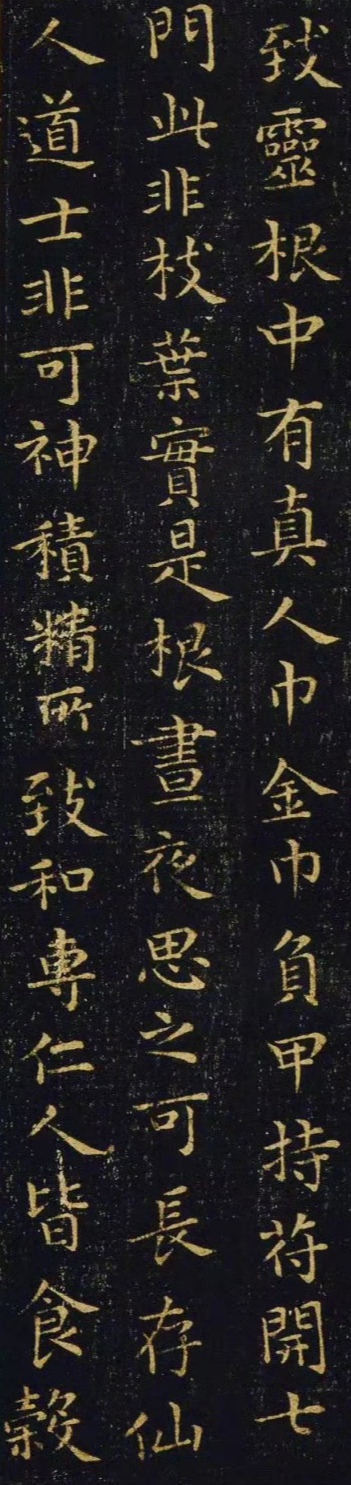 致靈根中有真人巾金巾負甲持苻開七
門此非枝葉實是根晝夜思之可長存仙
人道士非可神積精所致和專仁人皆食穀